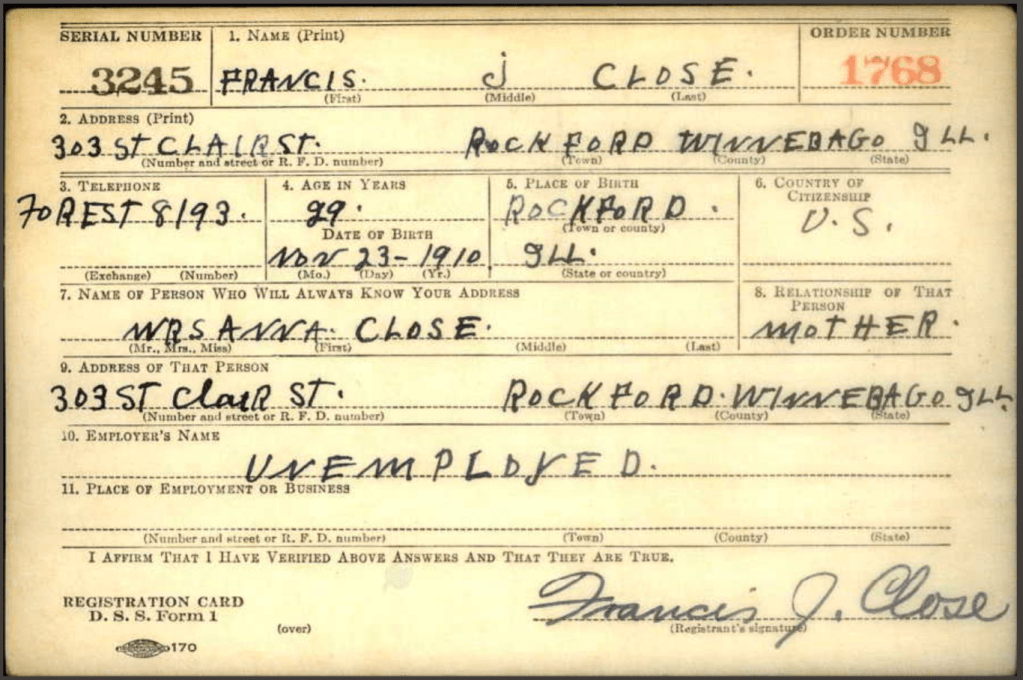 SERIAL NUMBER 1. NAME (Print) ORDER NUMBER
3245 FRANCIS. J CLOSE. 1768
(First) (Middle) (Last)
2. ADDRESS (Print)
303 ST CLAIR ST. ROCKFORD WINNEBAGO ILL.
(Number and street or R. F. D. number) (Town) (County) (State)
3. TELEPHONE 4. AGE IN YEARS 5. PLACE OF BIRTH 6. COUNTRY OF CITIZENSHIP
FOREST 8193. 29. ROCKFORD. U.S.
DATE OF BIRTH (Town or county)
NOV 23-1910 ILL.
(Exchange) (Number) (Mo.) (Day) (Yr.) (State or country)
7. NAME OF PERSON WHO WILL ALWAYS KNOW YOUR ADDRESS 8. RELATIONSHIP OF THAT PERSON
MRS ANNA. CLOSE. MOTHER.
(Mr., Mrs., Miss) (First) (Middle) (Last)
9. ADDRESS OF THAT PERSON
303 ST ClaiR ST. ROCKFORD. WINNEBAGO ILL
(Number and street or R. F. D. number) (Town) (County) (State)
10. EMPLOYER'S NAME
UNEMPLOYED.
11. PLACE OF EMPLOYMENT OR BUSINESS
(Number and street or R. F. D. number) (Town) (County) (State)
I AFFIRM THAT I HAVE VERIFIED ABOVE ANSWERS AND THAT THEY ARE TRUE.
REGISTRATION CARD
D. S. S. Form 1 Francis J. Close
(over) (Registrant's signature)
170